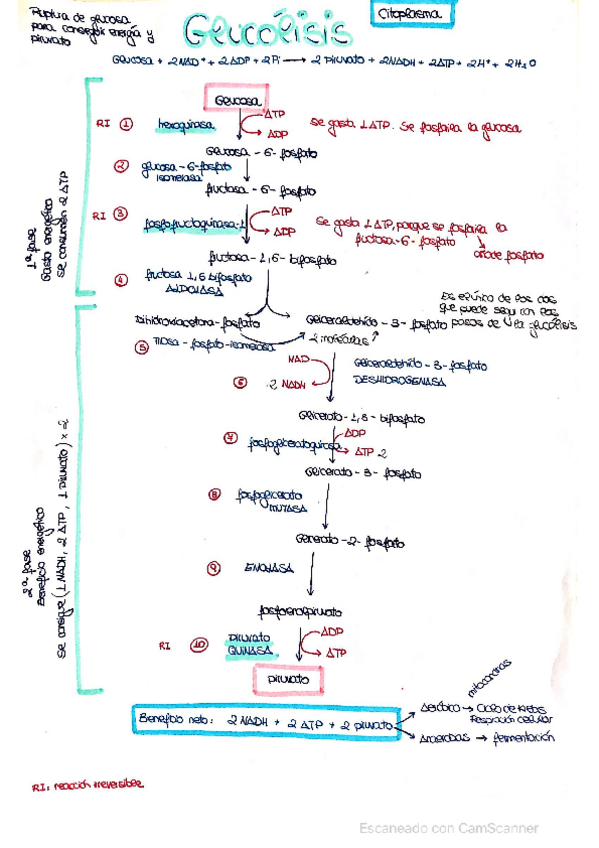 Ruptura de glucosa
para conseguir energía y
piruvato
Glucólisis
Citoplasma
Glucosa + 2 NAD⁺ + 2 ADP + 2 Pi → 2 piruvato + 2 NADH + 2 ATP + 2 H⁺ + 2 H₂O
Glucosa
RI ① hexoquinasa
ATP
ADP
Se gasta 1 ATP. Se fosforila la glucosa
Glucosa - 6 - fosfato
② glucosa - 6 - fosfato
isomerasa
fructosa - 6 - fosfato
RI ③ fosfofructoquinasa-1
ATP
ADP
Se gasta 1 ATP, porque se fosforila la
fructosa - 6 - fosfato
añade fosfato
fructosa - 1,6 - bifosfato
④ fructosa 1,6 bifosfato
ALDOLASA
1ª fase
Gasto energético
se consumen 2 ATP
Dihidroxiacetona - fosfato
Gliceraldehído - 3 - fosfato
Es el único de los dos
que puede seguir con los
pasos de la glucólisis
⑤ Triosa - fosfato - isomerasa
2 moléculas
⑥
NAD
2 NADH
Gliceraldehído - 3 - fosfato
DESHIDROGENASA
Glicerato - 1,3 - bifosfato
⑦ fosfogliceratoquinasa
ADP
ATP 2
Glicerato - 3 - fosfato
⑧ fosfoglicerato
MUTASA
Glicerato - 2 - fosfato
⑨ ENOLASA
fosfoenolpiruvato
RI ⑩ PIRUVATO
QUINASA
ADP
ATP
Piruvato
2ª fase
Beneficio energético
Se consigue (1 NADH, 2 ATP, 1 piruvato) x 2
Beneficio neto: 2 NADH + 2 ATP + 2 piruvato
mitocondrias
Aeróbico → Ciclo de Krebs
Respiración celular
Anaerobias → fermentación
RI: reacción irreversible
Escaneado con CamScanner